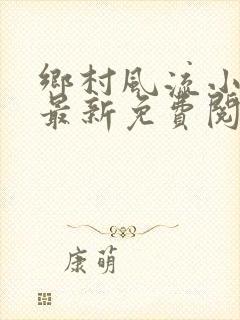 鄉村風流小
最新免費閱
康萌